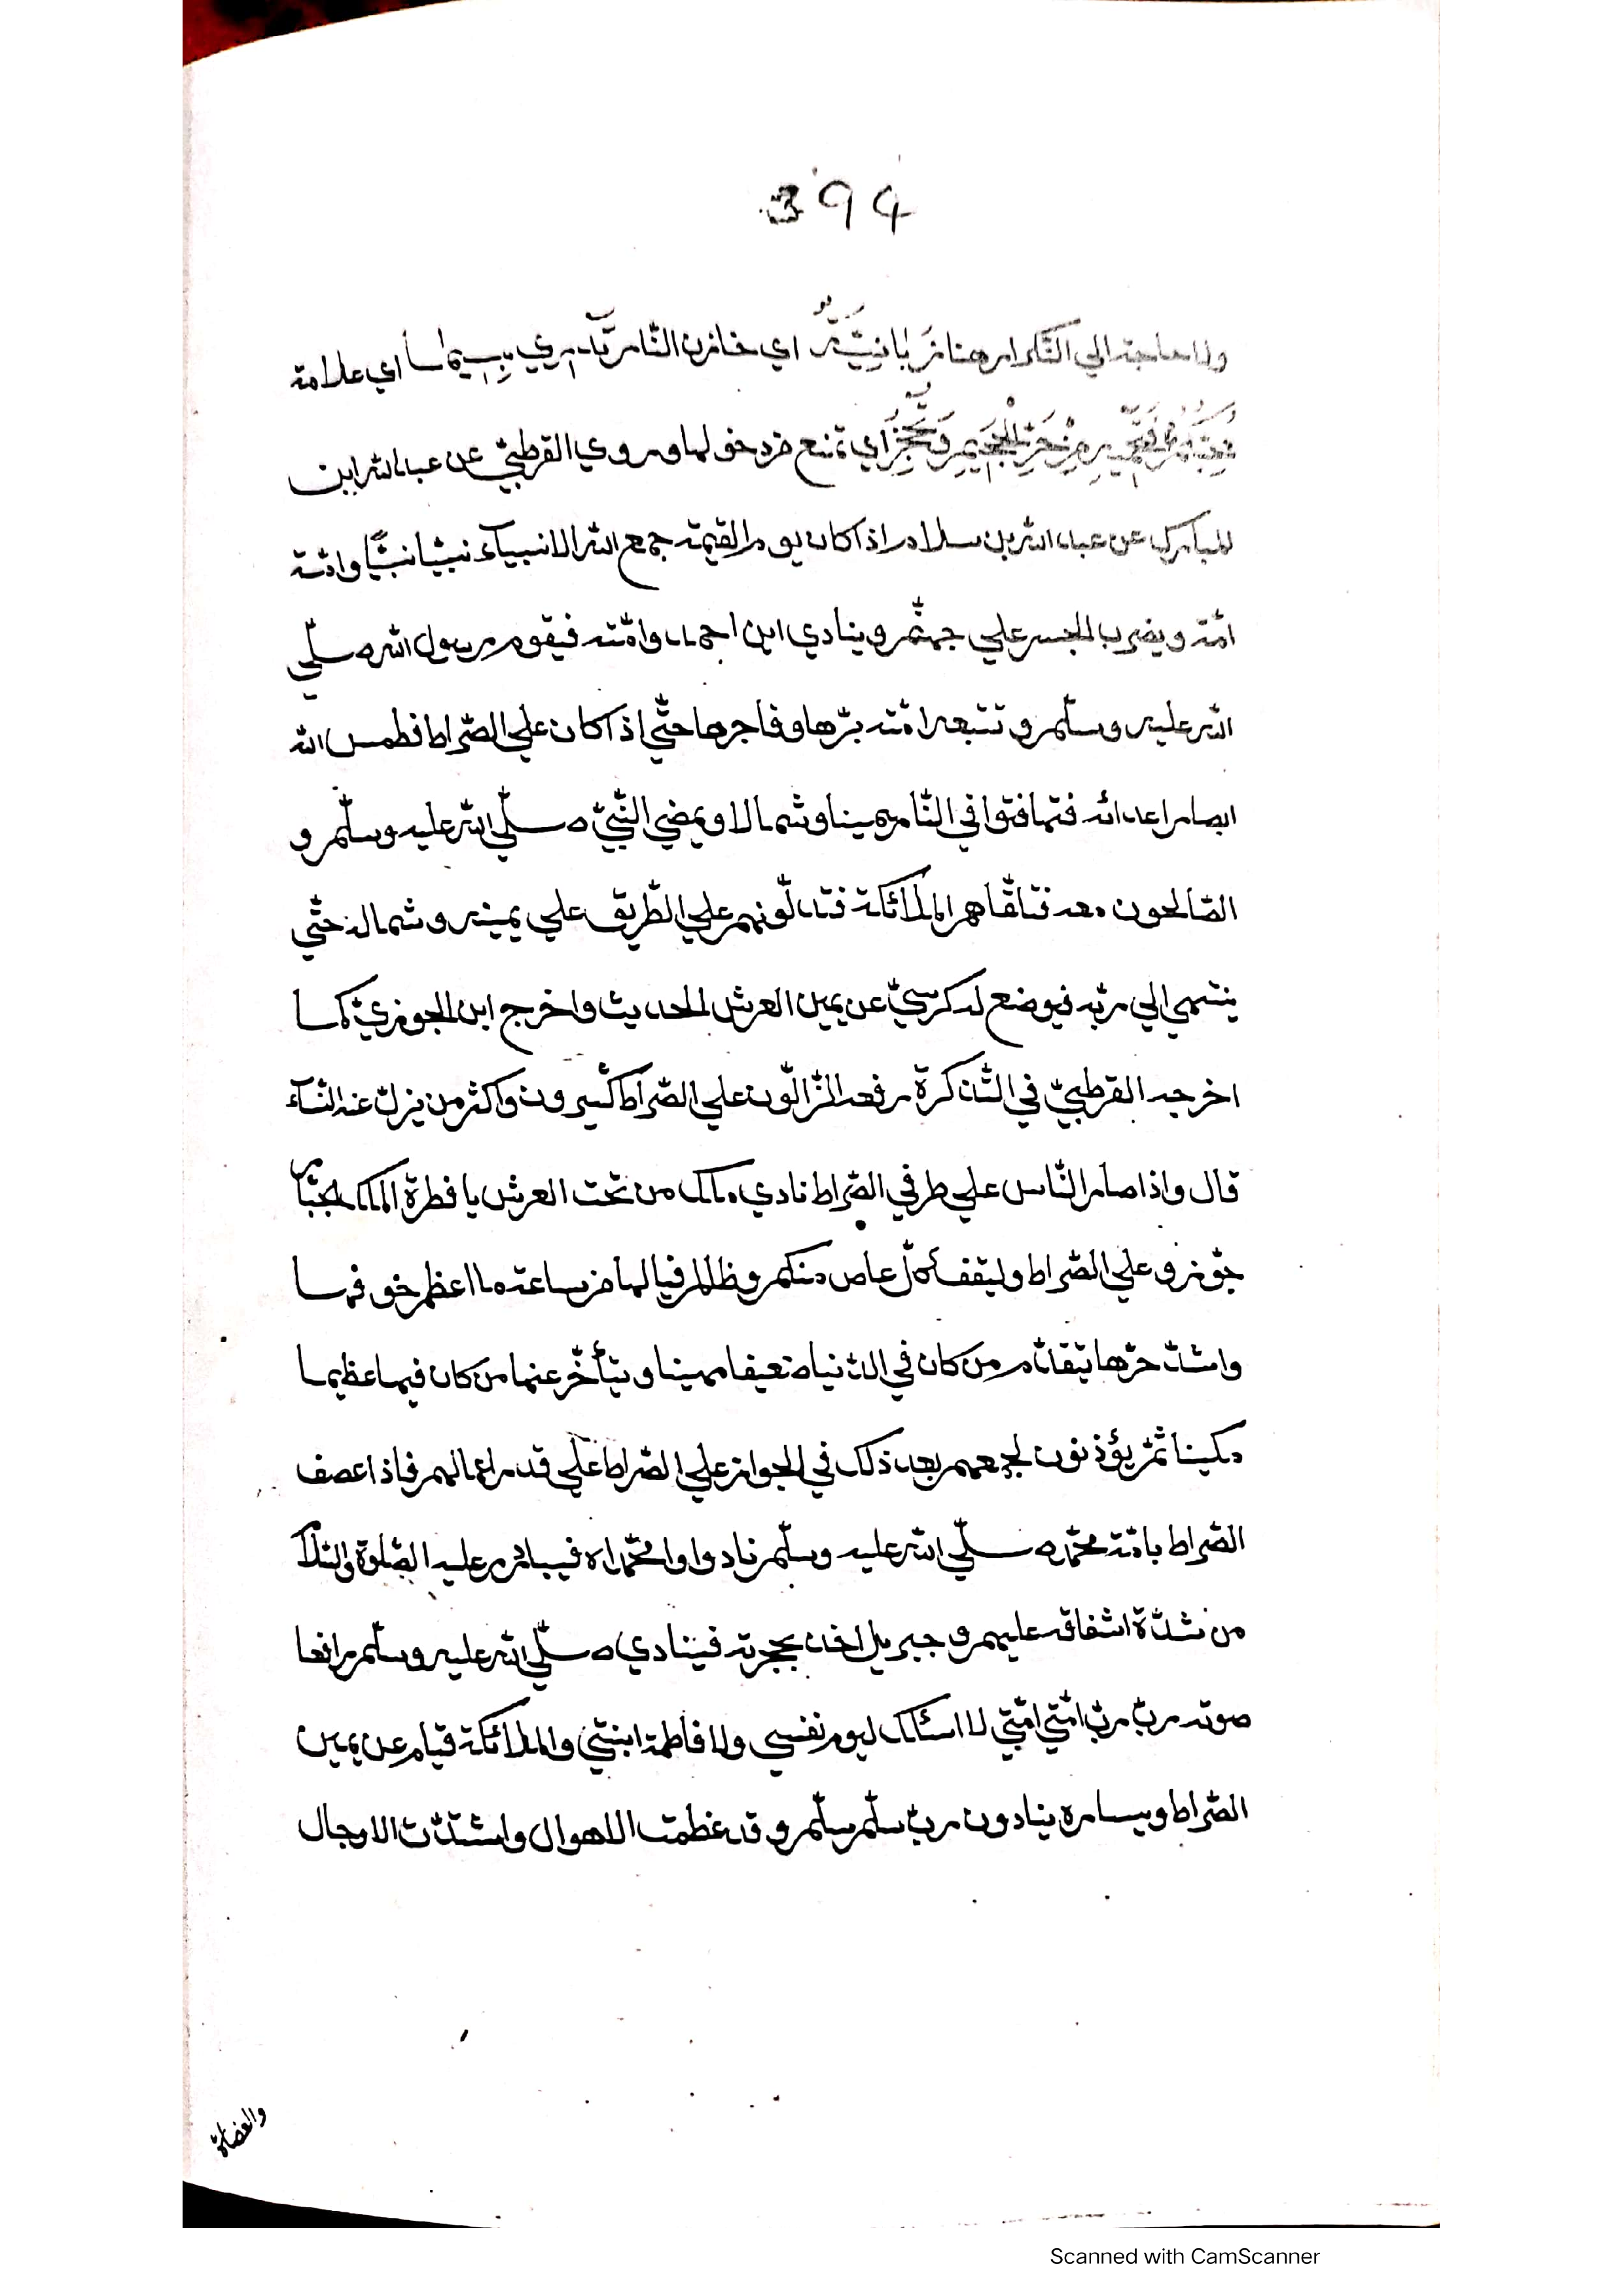 394
ولا حاجة الي التكرار هنا زبانية اي خازن النار تدري بسيما اي علامة
من حر الجحيم وتحجز اي تمنع من دخولها وروي القرطبيّ عن عبد الله ابن
المبارك عن عبد الله بن سلام اذا كان يوم القيمة جمع الله الانبيآء نبيّا نبيّا وامّة
امّة ويضرب الجسر علي جهنّم وينادي اين احمد وامّته فيقوم رسول الله صلّي
الله عليه وسلّم و تتبعه امّته برّها وفاجرها حتّي اذا كان علي الصّراط فطمس الله
ابصار اعدائه فتهافتوا في النّار يمينا وشمالا ويمضي النّبيّ صلّي الله عليه وسلّم و
الصّالحون معه فتلقّاهم الملائكة فتدلّونهم علي الطّريق علي يمينه وشماله حتّي
ينتهي الي ربّه فيوضع له كرسيّ عن يمين العرش الحديث واخرج ابن الجوزيّ كما
اخرجه القرطبيّ في التّذكرة رفعه الزّالّون علي الصّراط كثيرون واكثر من يزلّ عنه النّسآء
قال واذا صار النّاس علي طرفي الصّراط نادي ملك من تحت العرش يا فطرة الملك الجبّار
جوّزوا علي الصّراط وليقف كلّ عاص منكم وظالم فيا لها من ساعة ما اعظم خوفها
واشدّ حرّها يتقدّم من كان في الدّنيا ضعيفا مهينا ويتأخّر عنها من كان فيها عظيما
مكينا ثمّ يؤذنون لجميعهم بعد ذلك في الجواز علي الصّراط علي قدر اعمالهم فاذا عصف
الصّراط بامّة محمّد صلّي الله عليه وسلّم نادوا وامحمّداه فيبادر عليه الصّلوة والسّلام
من شدّة اشفاقه عليهم و جبريل اخذ بحجزته فينادي صلّي الله عليه وسلّم رافعا
صوته ربّ ربّ امّتي امّتي لا اسئلك اليوم نفسي ولا فاطمة ابنتي والملائكة قيام عن يمين
الصّراط ويساره ينادون ربّ سلّم سلّم و قد عظمت الاهوال واشتدّت الاوجال
والعصاة
Scanned with CamScanner